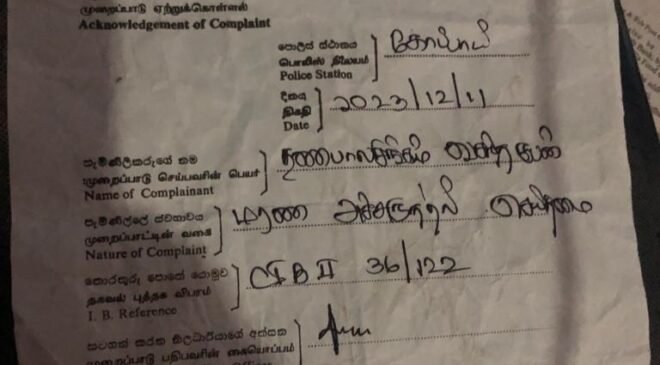 முறைப்பாடு ஏற்றுக்கொள்ளல்
Acknowledgement of Complaint
පොලිස් ස්ථානය
பொலிஸ் நிலையம்
Police Station
කෝප்பாய்
දිනය
திகதி
Date
2023/12/11
පැමිණිලිකරුගේ නම
முறைப்பாடு செய்பவரின் பெயர்
Name of Complainant
குணபாலசிங்கம்
පැමිණිල්ලේ ස්වභාවය
முறைப்பாட்டின் வகை
Nature of Complaint
மரண அச்சுறுத்தல் செய்தமை
තොරතුරු පොතේ යොමුව
தகவல் புத்தக விபரம்
I. B. Reference
CIB II 36/122
සටහන් කරන නිලධාරියාගේ අත්සන
முறைப்பாடு பதிபவரின் கையொப்பம்